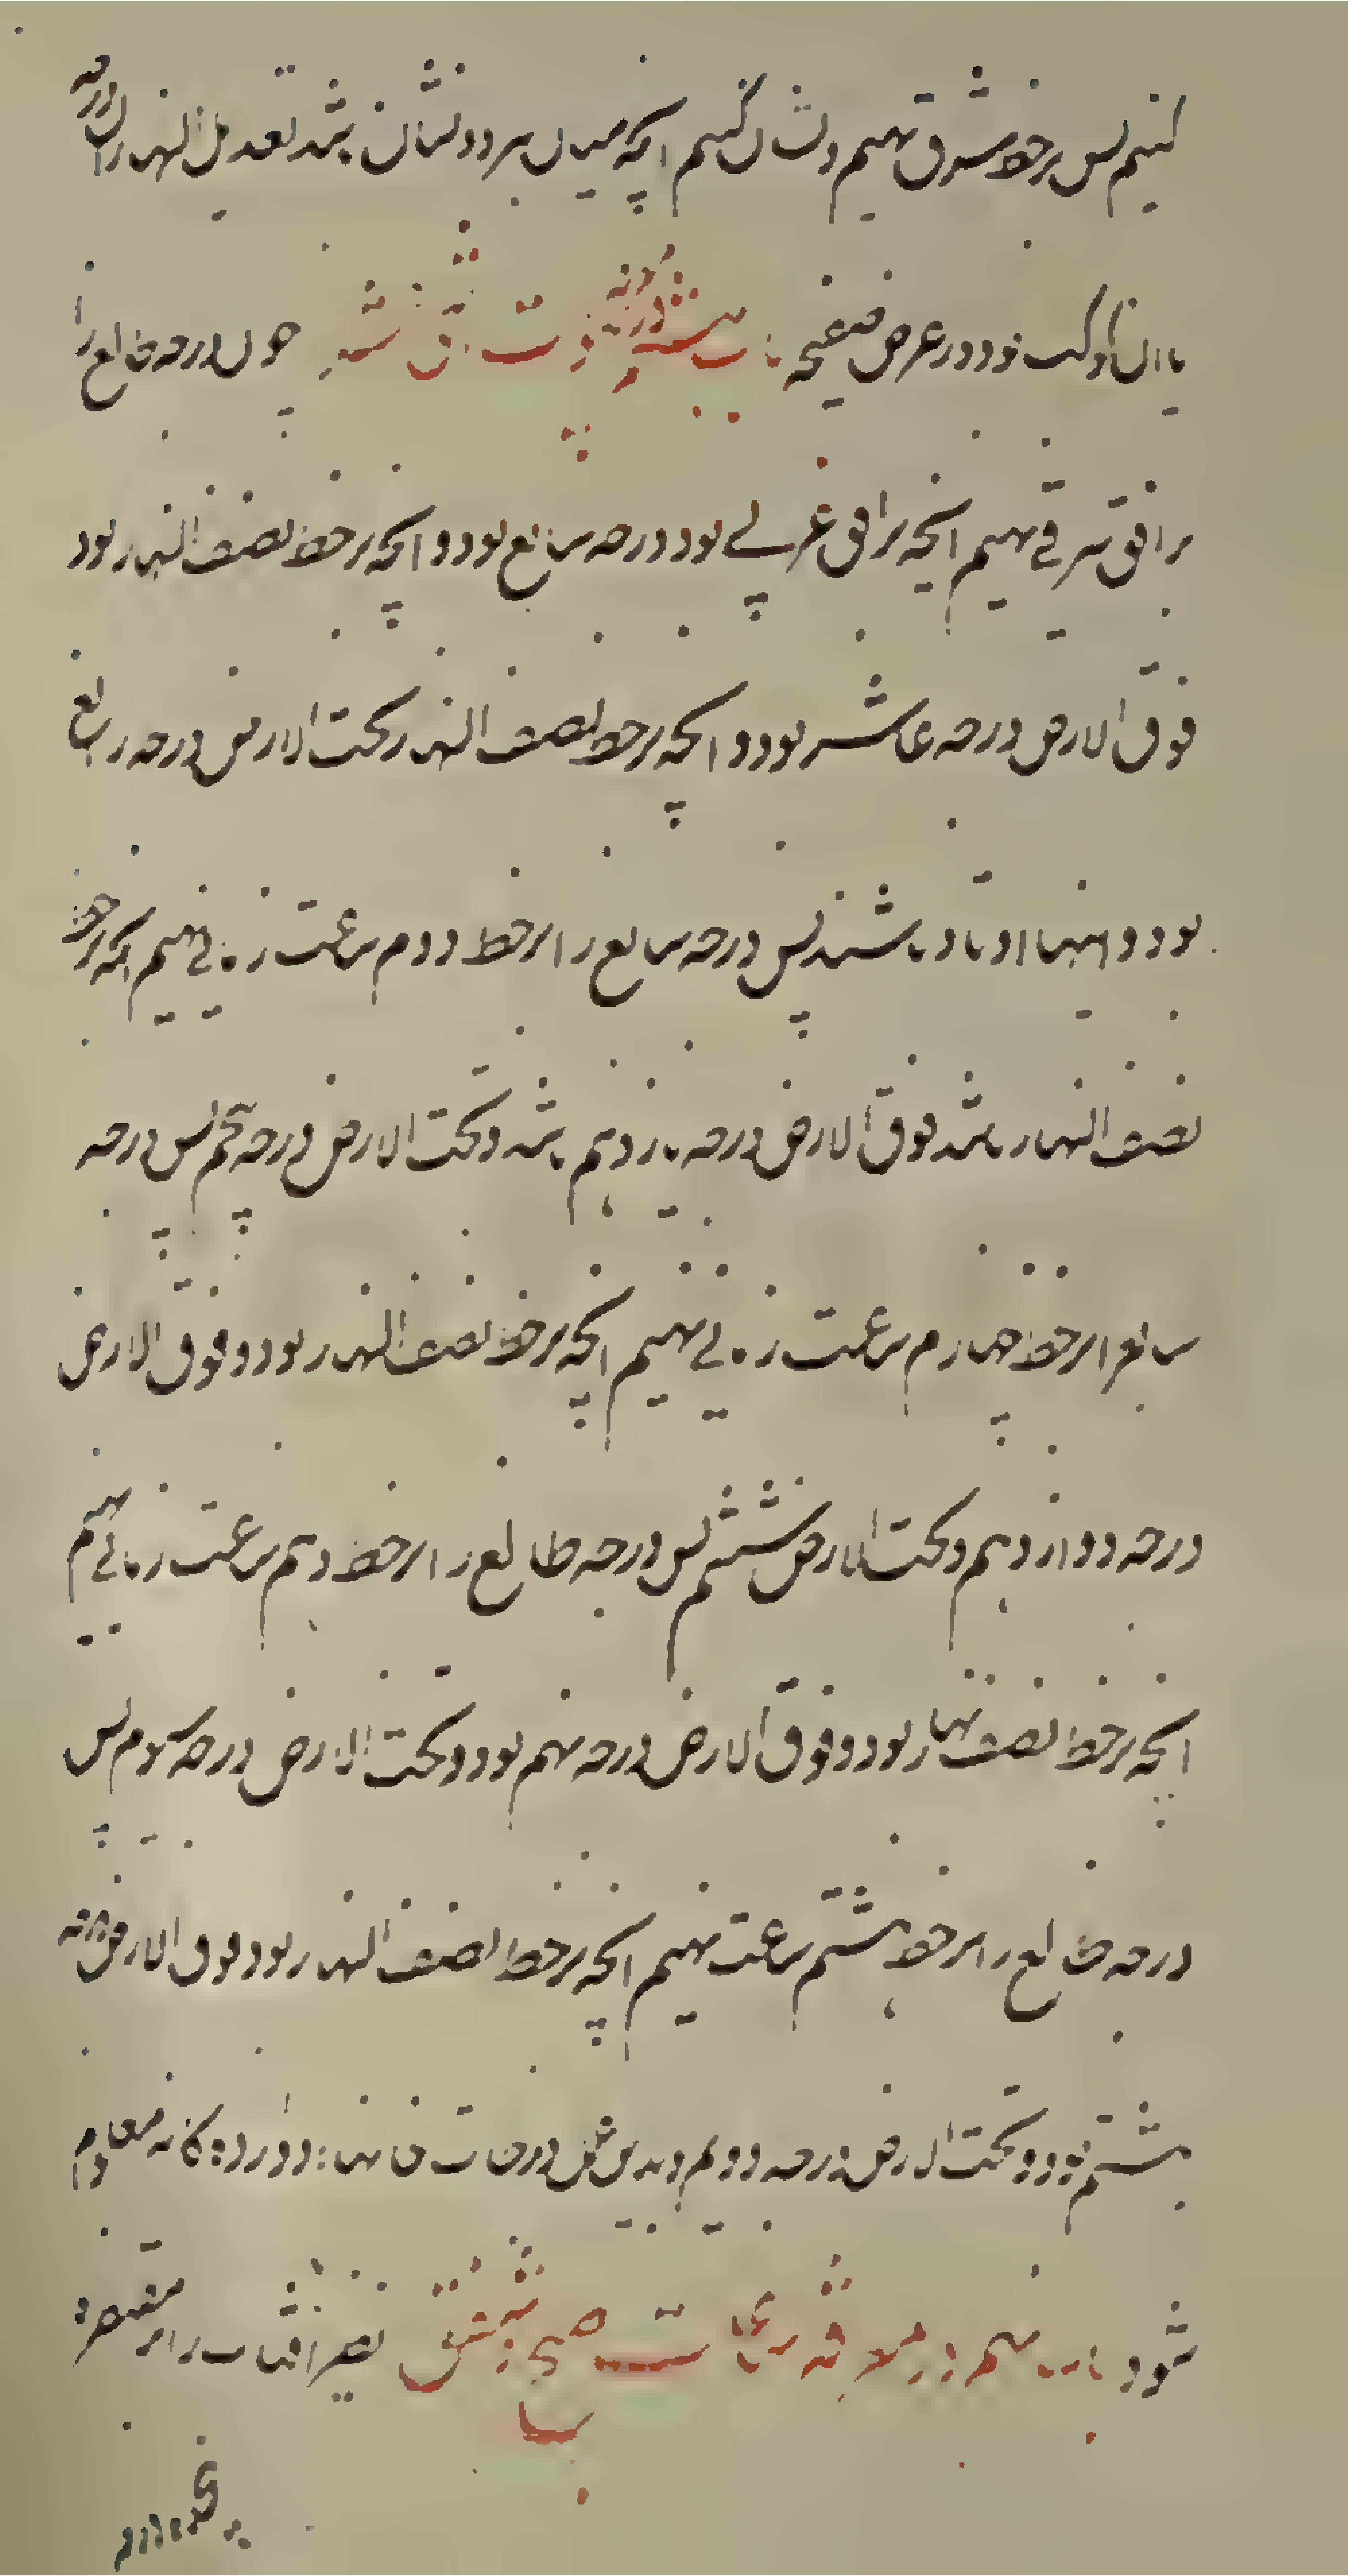 کنیم پس بر خط مشرق نهیم و نشان کنیم آنچه میان هر دو نشان باشد تعدیل النهار آن درجه
یا آن کوکب بود در عرض صفیحه باب هشتم در تسویة البیوت چون درجه طالع را
بر افق شرقی نهیم آنچه بر افق غربی بود درجه سابع بود و آنچه بر خط نصف النهار بود
فوق الارض درجه عاشر بود و آنچه بر خط نصف النهار تحت الارض درجه رابع
بود و اینها اوتاد باشند پس درجه سابع را بر خط دوم ساعت زمانی نهیم آنچه بر خط
نصف النهار باشد فوق الارض درجه یازدهم باشد و تحت الارض درجه پنجم پس درجه
سابع را بر خط چهارم ساعت زمانی نهیم آنچه بر خط نصف النهار بود و فوق الارض
درجه دوازدهم و تحت الارض ششم پس درجه طالع را بر خط دهم ساعت زمانی نهیم
آنچه بر خط نصف نهار بود و فوق الارض درجه نهم بود و تحت الارض درجه سوم پس
درجه طالع را بر خط هشتم ساعت نهیم آنچه بر خط نصف النهار بود فوق الارض درجه
هشتم بود و تحت الارض درجه دویم و بدین شکل درجات خانها دوازده گانه معلوم
شود باب نهم در معرفة ساعات صبح و شفق نظیر آفتاب را بر مقنطره